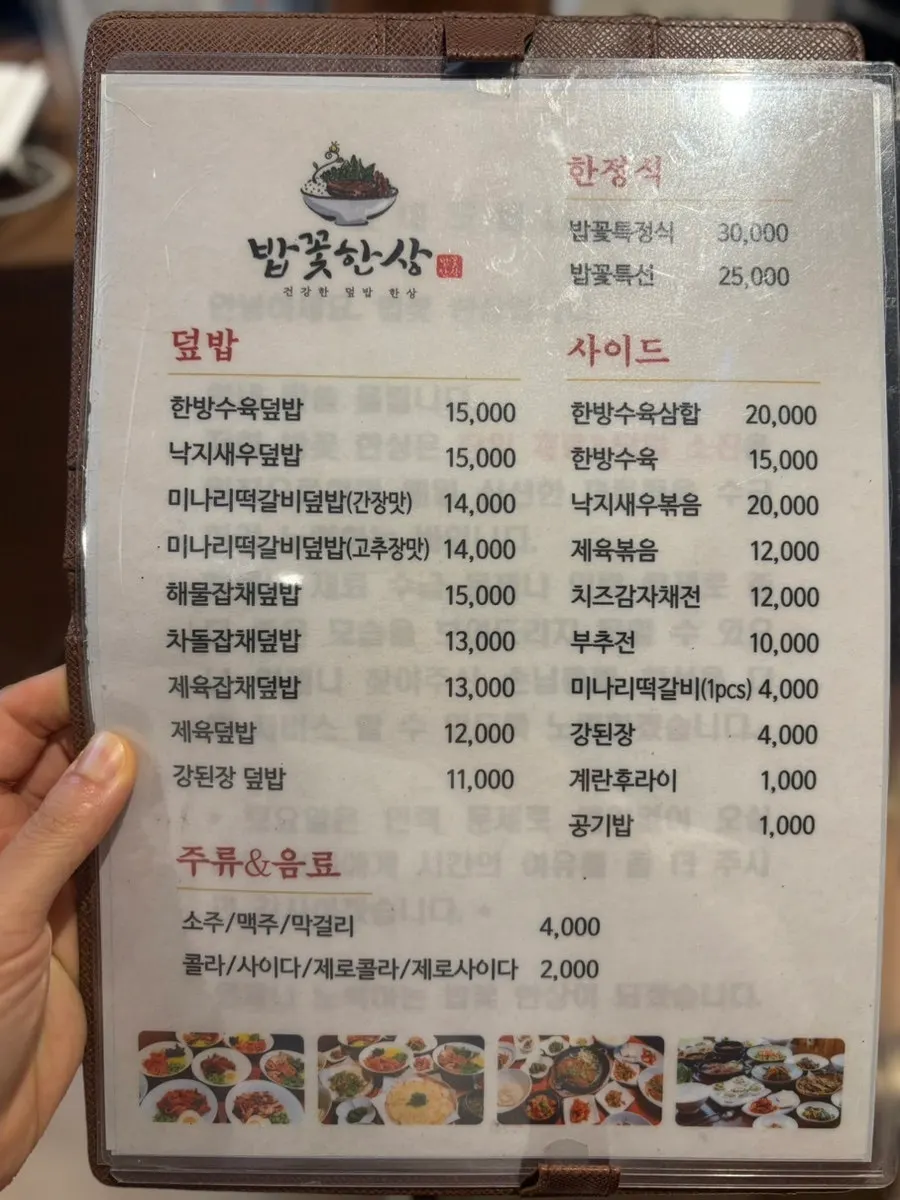 밥꽃한상
건강한 덮밥 한상
한정식
밥꽃특정식 30,000
밥꽃특선 25,000
덮밥
한방수육덮밥 15,000
낙지새우덮밥 15,000
미나리떡갈비덮밥(간장맛) 14,000
미나리떡갈비덮밥(고추장맛) 14,000
해물잡채덮밥 15,000
차돌잡채덮밥 13,000
제육잡채덮밥 13,000
제육덮밥 12,000
강된장 덮밥 11,000
사이드
한방수육삼합 20,000
한방수육 15,000
낙지새우볶음 20,000
제육볶음 12,000
치즈감자채전 12,000
부추전 10,000
미나리떡갈비(1pcs) 4,000
강된장 4,000
계란후라이 1,000
공기밥 1,000
주류&음료
소주/맥주/막걸리 4,000
콜라/사이다/제로콜라/제로사이다 2,000